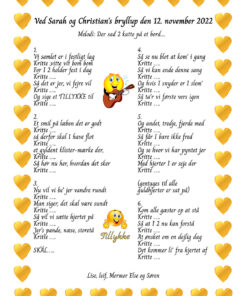 Ved Sarah og Christian's bryllup den 12. november 2022
Melodi: Der sad 2 katte på et bord...
1.
Vi samlet er i festligt lag
Kritte vitte vit bom bom
For I 2 holder fest i dag
Kritte ....
Så det er jer, vi fejrer vil
Kritte ....
Og sige et TILLYKKE til
Kritte ....
2.
Et smil på læben det er godt
Kritte ....
så derfor skal I have flot
Kritte ....
et gyldent klister-mærke der,
Kritte ....
Så hør nu her, hvordan det sker
Kritte ....
3.
Nu vil vi be' jer vandre rundt
Kritte ....
Man siger, det skal være sundt
Kritte ....
Så vil vi sætte hjerter på
Kritte ....
Jer's pande, næse, storetå
Kritte ....
SKÅL....
4.
Så se nu blot at kom' i gang
Kritte ....
Så vi kan ende denne sang
Kritte ....
Og hvis I snyder er I slem'
Kritte ....
Så ta'r vi første vers igen
Kritte ....
5.
Og andet, tredje, fjerde med
Kritte ....
Så får I bare ikke fred
Kritte ....
Og se hvor vi har pyntet jer
Kritte ....
Med hjerter I er seje der
Kritte ....
(Gentages til alle
guldhjerter er sat på)
6.
Kom alle gæster og at stå
Kritte ....
Så at I 2 nu kan forstå
Kritte ....
At ønsket om en dejlig dag
Kritte ....
Det kommer li' fra hjertet af
Kritte ....
Tillykke
Lise, leif, Mormor Else og Søren